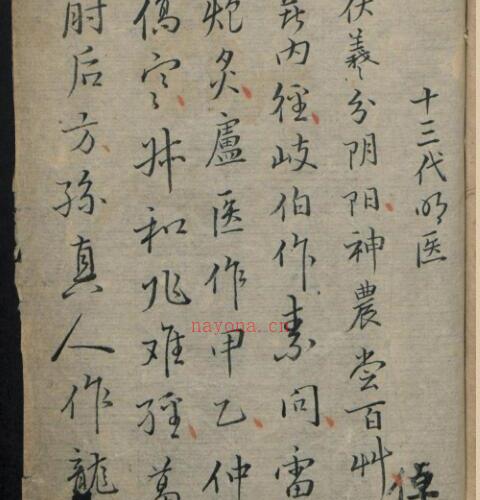 十三代明医
伏羲分阴阳神農尝百艸
内径岐伯作素问雷
炮炙盧医作甲乙仲
傷寒叔和水难経葛
肘后方孫真人作龍
nayona.cn